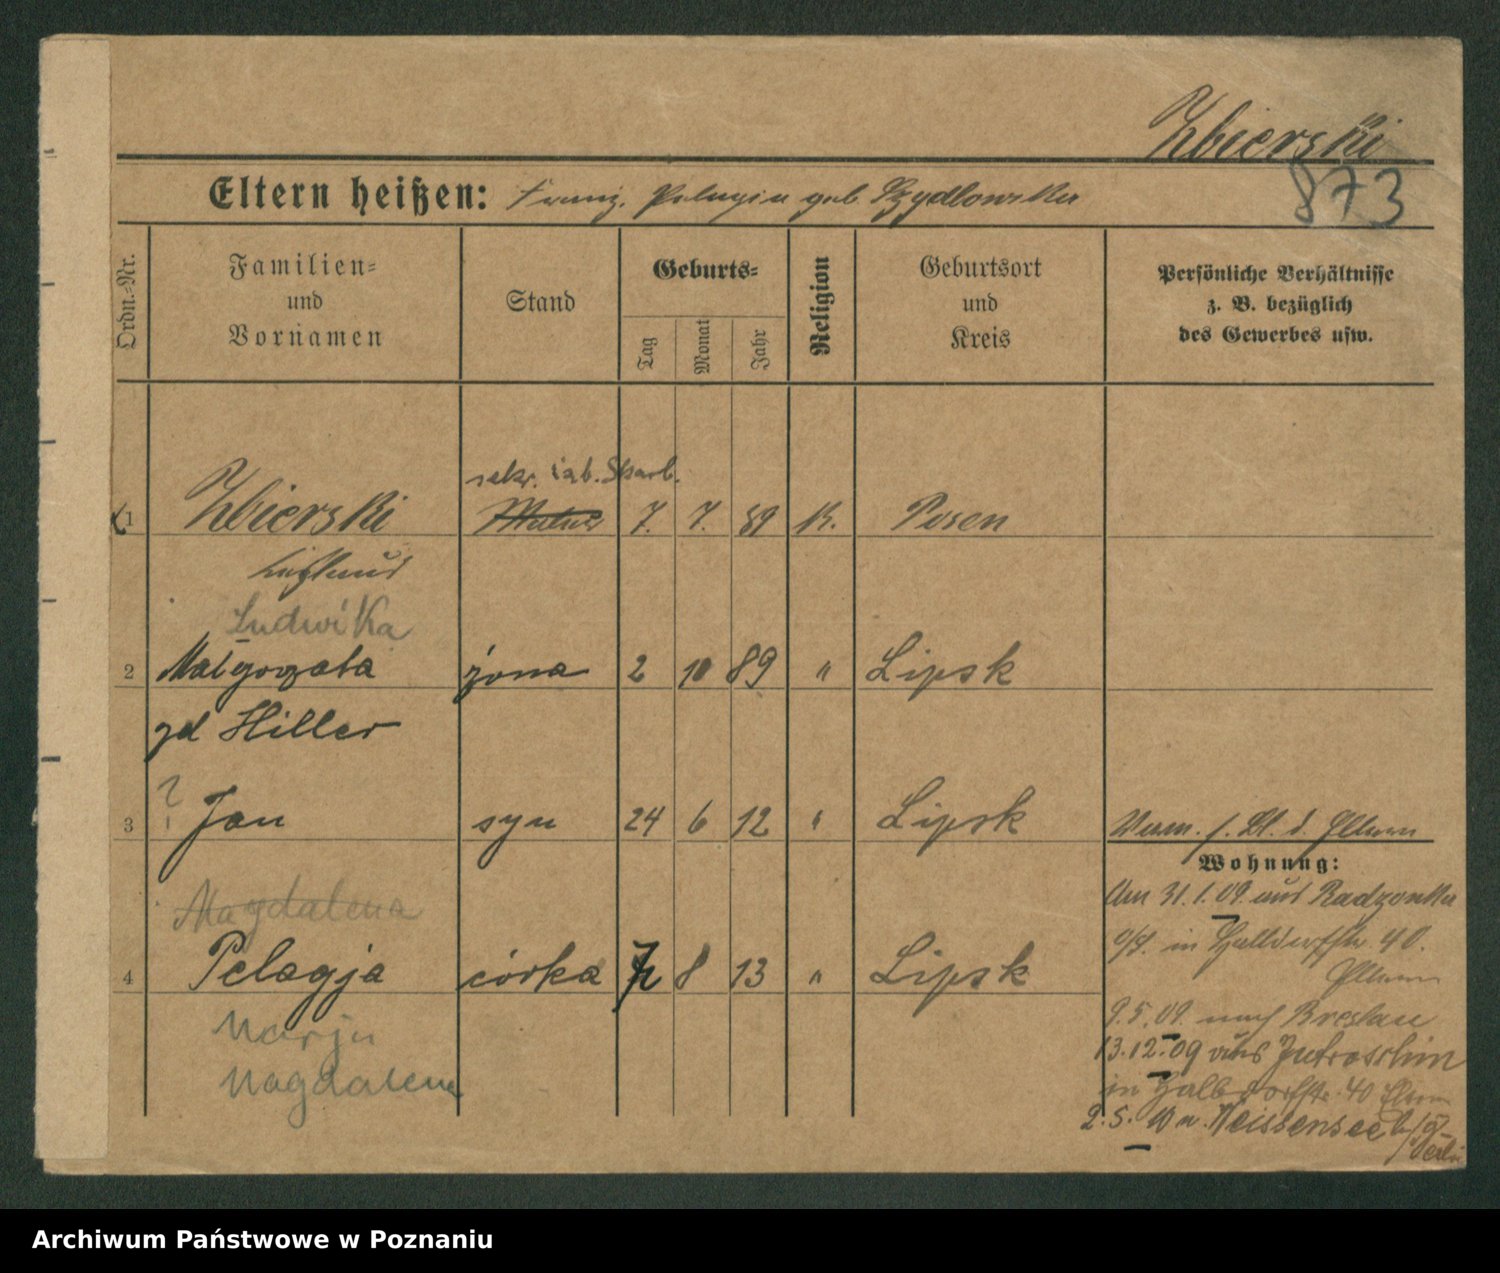 Zbierski
873
Eltern heißen: Franz, Pelagia geb Szydlowska
Ordn.-Nr.
Familien-
und
Vornamen
Stand
Geburts-
Tag
Monat
Jahr
Religion
Geburtsort
und
Kreis
Persönliche Verhältnisse
z. B. bezüglich
des Gewerbes usw.
sekr. izb. Skarb.
1 Zbierski 7. 7. 89 K. Posen
Ludwika
2 Małgorzata żona 2 10 89 " Lipsk
zd Hiller
?
3 Jan syn 24 6 12 " Lipsk
Wohnung:
Magdalena
Am 31.1.09. aus Radzonka
in 40.
4 Pelagja córka 8 13 " Lipsk
Marja
9.5.09. nach Breslau
13.12.09 aus Jutroschin
Magdalena
in Halbdorfstr. 40 Eltern
2.5. n. Weissensee b/
Berlin
Archiwum Państwowe w Poznaniu